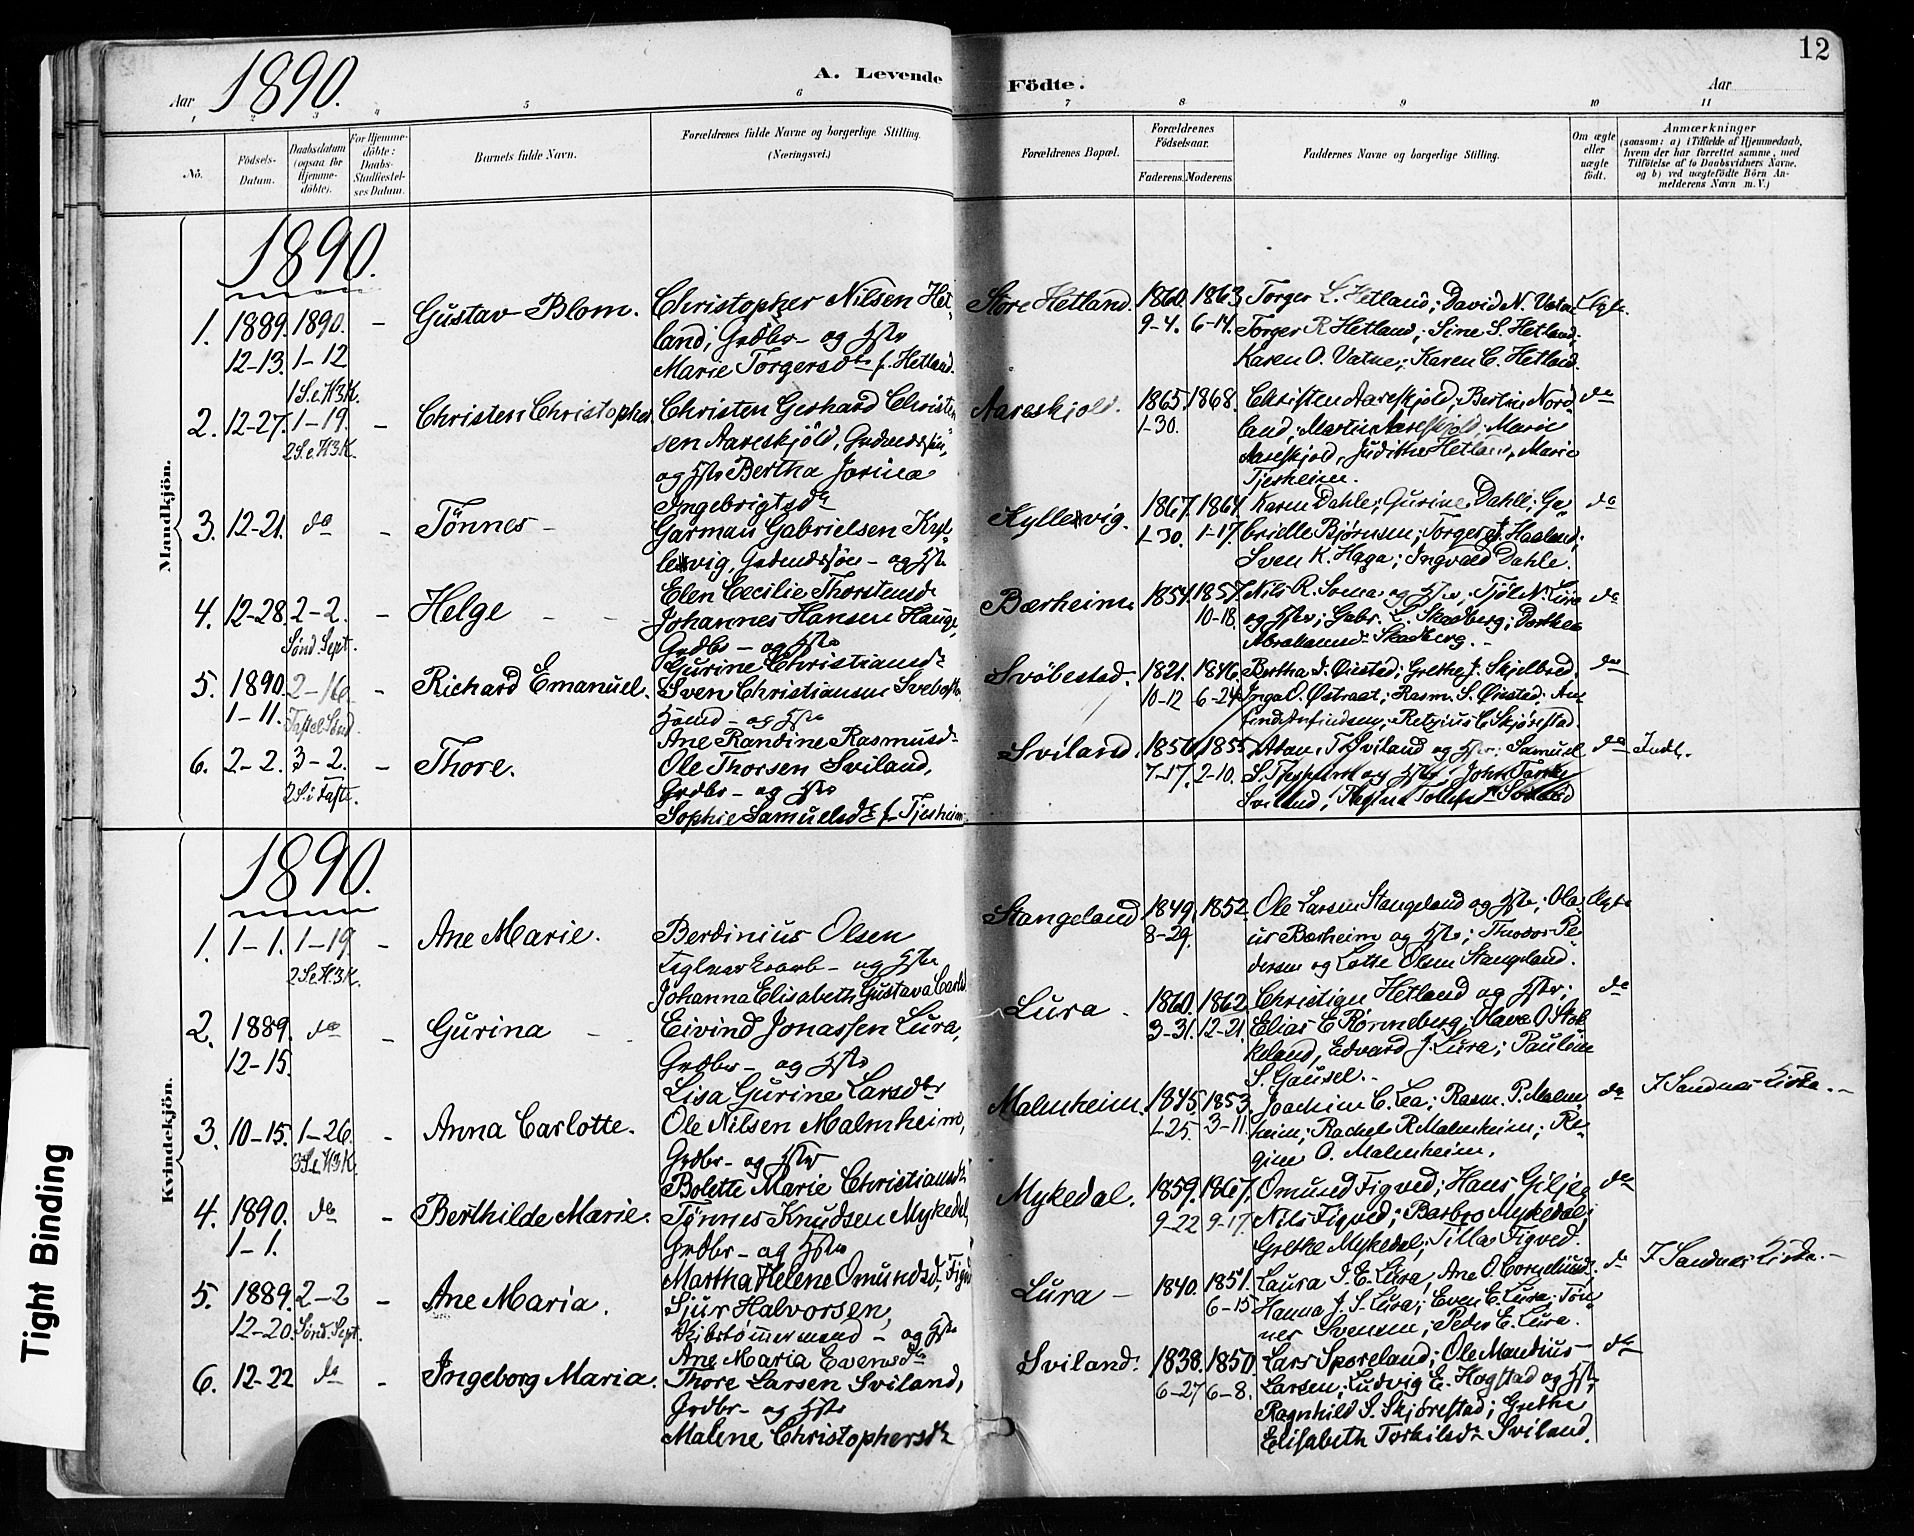 12
Aar 1890.
A. Levende Födte.
Aar
1 2 3 4 5 6 7 8 9 10 11
Nô.
Födsels-Datum.
Daabsdatum (ogsaa for Hjemmedöbte).
For Hjemmedöbte: Daabs-Stadfæstelses Datum.
Barnets fulde Navn.
Forældrenes fulde Navne og borgerlige Stilling. (Næringsvei.)
Forældrenes Bopæl.
Forældrenes Födselsaar.
Faderens. Moderens.
Faddernes Navne og borgerlige Stilling.
Om ægte eller uægte födt.
Anmærkninger
(saasom: a) i Tilfælde af Hjemmedaab,
hvem der har forrettet samme, med
Tilföielse af to Daabsvidners Navne,
og b) ved uægtefödte Börn Anmelderens Navn m. V.)
Mandkjön.
1890.
1. 1889. 12-13. 1890. 1-12 1 S. e. H3K. - Gustav Blom.
Christopher Nilsen Hetland, Grdbr - og Hstr
Marie Torgersdtr f. Hetland.
Store Hetland. 1860. 9-4. 1863. 6-14.
Torger L. Hetland; David N. Vatne
Torger R Hetland; Sine S. Hetland;
Karen O. Vatne; Karen C. Hetland.
Ægte.
2. 12-27. 1-19. 2 S. e. H3K. - Christen Christopher.
Christen Gerhard Christensen Aareskjöld,
og Hstr Bertha Jorina
Ingebrigtsdtr
Aareskjold. 1865. 1-30. 1868.
Christen Aareskjold, Bertine Nordland, Martin Aareskjold, Marie
Aareskjold, Judithe Hetland, Marie
Tjesheim.
do
3. 12-21. do - Tönnes -
Garman Gabrielsen Kyllesvig, - og Hstr
Elen Cecilie Thorstensdr
Kyllesvig. 1867. 1-30. 1864. 1-17.
Karen Dahle; Gurine Dahle; Gabrielle Bjørnsen; Torger J. Haaland;
Sven K. Haga; Ingvald Dahle.
do
4. 12-28. 2-2. Sønd. Sept. - Helge
Johannes Hansen Hauge,
Grdbr - og Hstr
Gurine Christiansdr
Bærheim. 1854. 1857. 10-18.
Nils R. Soma og Hstr,
og Hstr; Gabr. L. Skadberg; Dorthea
Abrahamsd. Skadberg.
do
5. 1890. 1-11. 2-16. Fastel. Sønd. - Richard Emanuel.
Sven Christiansen
- og Hstr
Ane Randine Rasmusdr
Svöbestad. 1821. 10-12 1846. 6-24.
Bertha J. Øiestad; Grethe J. Skjelbred,
Inga O. Østraat; Rasm. S. Øiestad;
C. Skjörestad.
do
6. 2-2. 3-2. 2 S. i Faste. - Thore.
Ole Thorsen Sviland,
Grdbr - og Hstr
Sophie Samuelsdr f. Tjesheim
Sviland. 1856. 7-17. 1855. 2-10.
Sviland og Hstr; Samuel
S. Tjessheim og Hstr,
Sviland;
do Indt.
Kvindekjön.
1890.
1. 1-1. 1-19 2 S. e. H3K. - Ane Marie.
Berdinius Olsen
- og Hstr
Johanna Elisabeth Gustava
Stangeland 1849. 8-29. 1852.
Ole Larsen Stangeland og Hstr; Olaus Bærheim og Hstr; Theodor Pedersen og Lotte Olsen Stangeland.
Ægte
2. 1889. 12-15. do - Gurina
Eivind Jonassen Lura,
Grdbr - og Hstr
Lisa Gurine Larsdtr
Lura - 1860. 3-31. 1862. 12-21.
Christian Hetland og Hstr;
Elias E Rønneberg; Olave O Stokkeland, Edvard J. Lura; Pauline
S. Gausel.-
do
3. 10-15. 1-26. 3 S. e. H3K. - Anna Carlotte.
Ole Nilsen Malmheim,
Grdbr - og Hstr
Bolette Marie Christiansdr
Malmheim. 1845. 1-25. 1853. 3-11.
Joachim C. Lea; Rasm. P. Malmheim; Rachel R Malmheim; Regine O. Malmheim.
do I Sandnes Kirke.-
4. 1890. 1-1. do - Berthilde Marie.
Tønnes Knudsen Mykedal,
Grdbr - og Hstr
Martha Helene Omundsd.
Mykedal. 1859. 9-22 1867. 9-17.
Omund Figved; Hans Giljeg
Nils Figved; Barbro Mykedal;
Grethe Mykedal; Tilla Figved.
do
5. 1889. 12-20. 2-2 Sønd. Sept. - Ane Maria.
Sjur Halvorsen,
Skibstømmermand - og Hstr
Ane Maria Evensdtr
Lura - 1840. 1851. 6-15
Laura J. E. Lura, Ane O. Corneliusd.
Hanna J. S. Lura; Even E. Lura; Tønnes Svensen; Peder E. Lura.
do I Sandnes Kirke.-
6. 12-22 do - Ingeborg Maria.
Thore Larsen Sviland,
Grdbr - og Hstr
Malene Christophersdr
Sviland. 1838. 6-27 1850. 6-8.
Lars Sporeland; Ole Mandius
Larsen; Ludvig E. Hogstad og Hstr
Ragnhild S. Skjörestad; Grethe
Elisabeth Torkilsdr Sviland.
do
Tight Binding